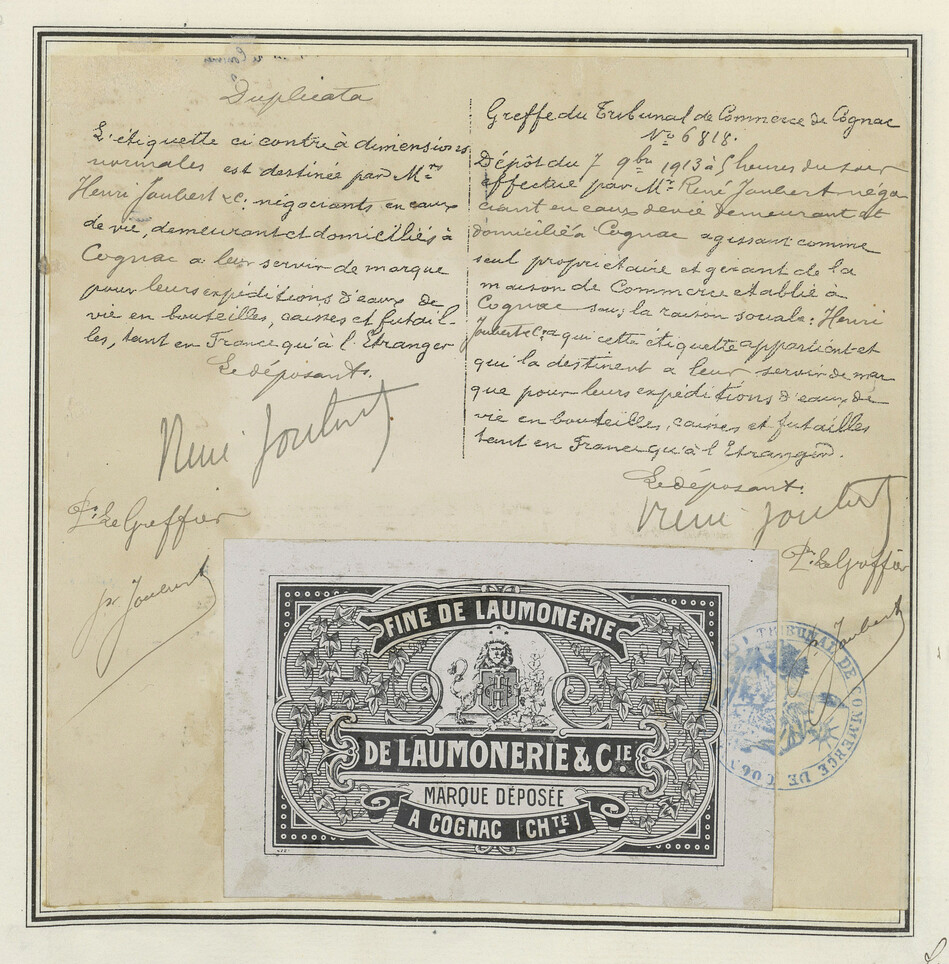 Duplicata
L'étiquette ci contre à dimensions
normales est destinée par Mrs
Henri Joubert & C. négociants en eaux
de vie, demeurant et domiciliés à
Cognac a leur servir de marque
pour leurs expéditions d'eaux de
vie en bouteilles, caisses et futail-
les, tant en France qu'à l'Etranger
Le déposant.
René Joubert
Pr Le Greffier
pr Joubert
Greffe du Tribunal de Commerce de Cognac
No 6818.
Dépôt du 7 9bre 1913 à 5 heures du soir
effectué par Mr René Joubert négo
ciant en eaux de vie demeurant et
domicilié à Cognac agissant comme
seul propriétaire et gérant de la
maison de Commerce etablie à
Cognac sous la raison sociale: Henri
Joubert & Cie qui cette étiquette appartient et
qui la destinent a leur servir de mar
que pour leurs expéditions d'eaux de
vie en bouteilles, caisses et futailles
tant en France qu'à l'Etranger.
Le déposant.
René Joubert
Pr Le Greffier
pr Joubert
FINE DE LAUMONERIE
DE LAUMONERIE & CIE.
MARQUE DÉPOSÉE
A COGNAC (CHTE)
TRIBUNAL DE COMMERCE DE COGNAC